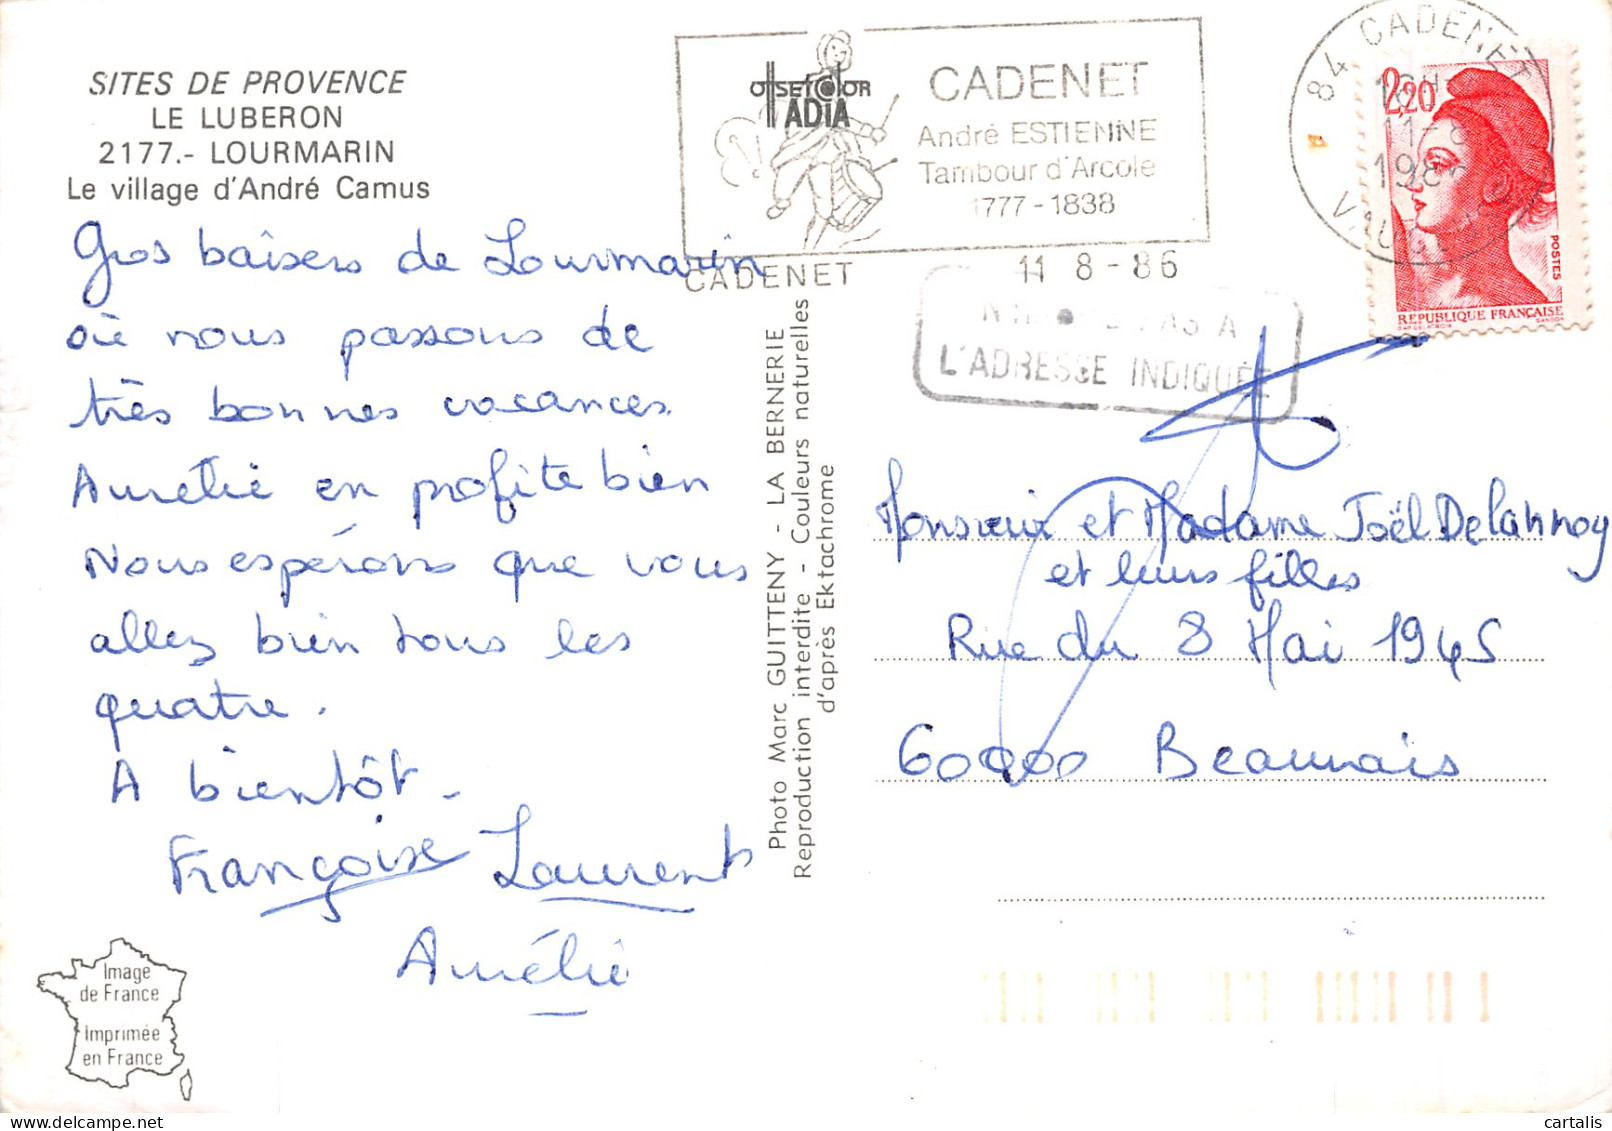 SITES DE PROVENCE
LE LUBERON
2177.- LOURMARIN
Le village d'André Camus
Gros baisers de Lourmarin
où nous passons de
très bonnes vacances.
Aurélie en profite bien
Nous espérons que vous
allez bien tous les
quatre.
A bientôt.
Françoise Laurent
Aurélie
Image
de France
Imprimée
en France
Photo Marc GUITTENY - LA BERNERIE
Reproduction interdite - Couleurs naturelles
d'après Ektachrome
OFFSETCOLOR
ADIA
CADENET
André ESTIENNE
Tambour d'Arcole
1777-1838
CADENET
11 8-86
84 CADENET
11-8
2,20
POSTES
REPUBLIQUE FRANÇAISE
PAS A
L'ADRESSE INDIQUÉE
Monsieur et Madame Joël Delannoy
et leurs filles
Rue du 8 Mai 1945
60000 Beauvais
cartalis